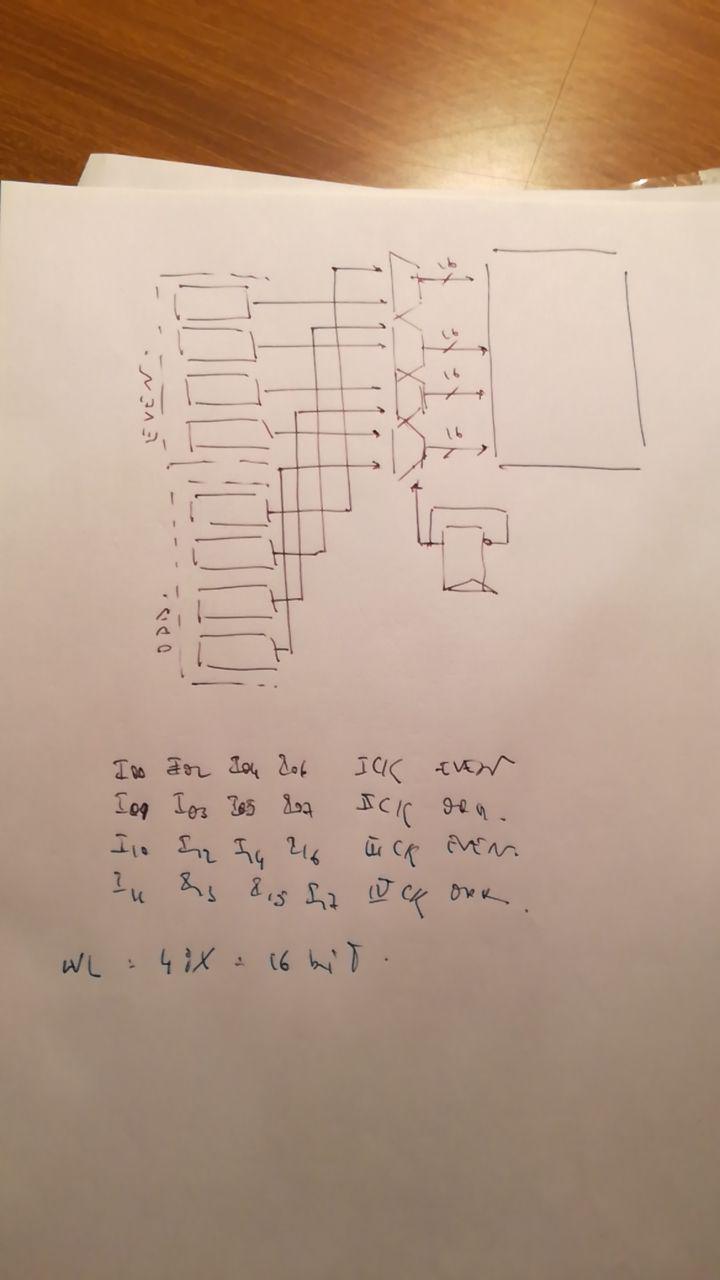 EVEN.
ODD.
16
16
16
16
I00 I02 I04 I06 I CK EVEN
I01 I03 I05 I07 II CK ODD.
I10 I12 I14 I16 III CK EVEN.
I11 I13 I15 I17 IV CK ODD.
WL = 4 = 16 bit.